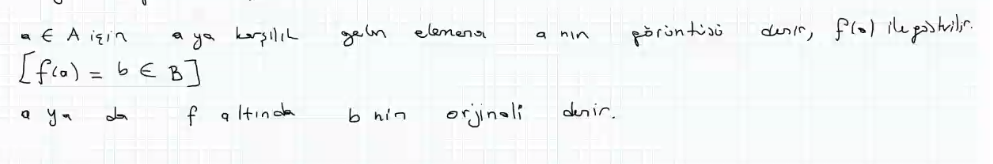 a ∈ A için a ya karşılık gelen elemena a nın görüntüsü denir, f(a) ile gösterilir.
[f(a) = b ∈ B]
a ya da f altında b nin orjinali denir.